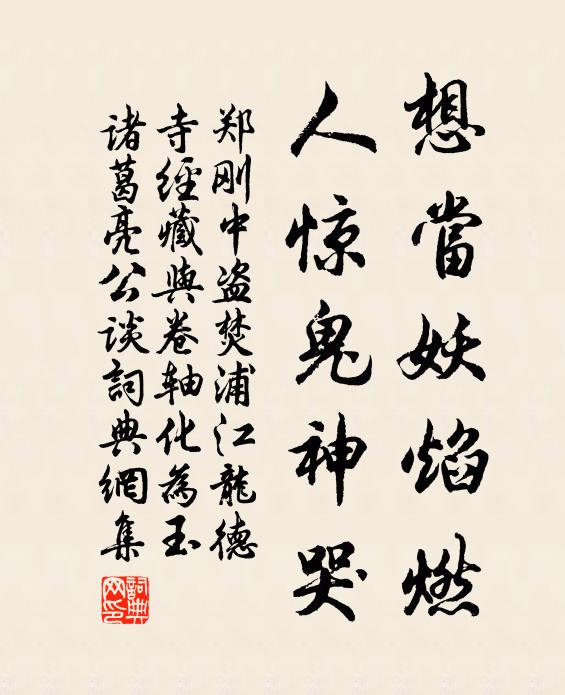 想當妖焰燃
人惊鬼神哭
郑刚中盗焚浦江龍德
寺經藏與卷轴化為玉
诸葛亮公谈詞典網集
詞典